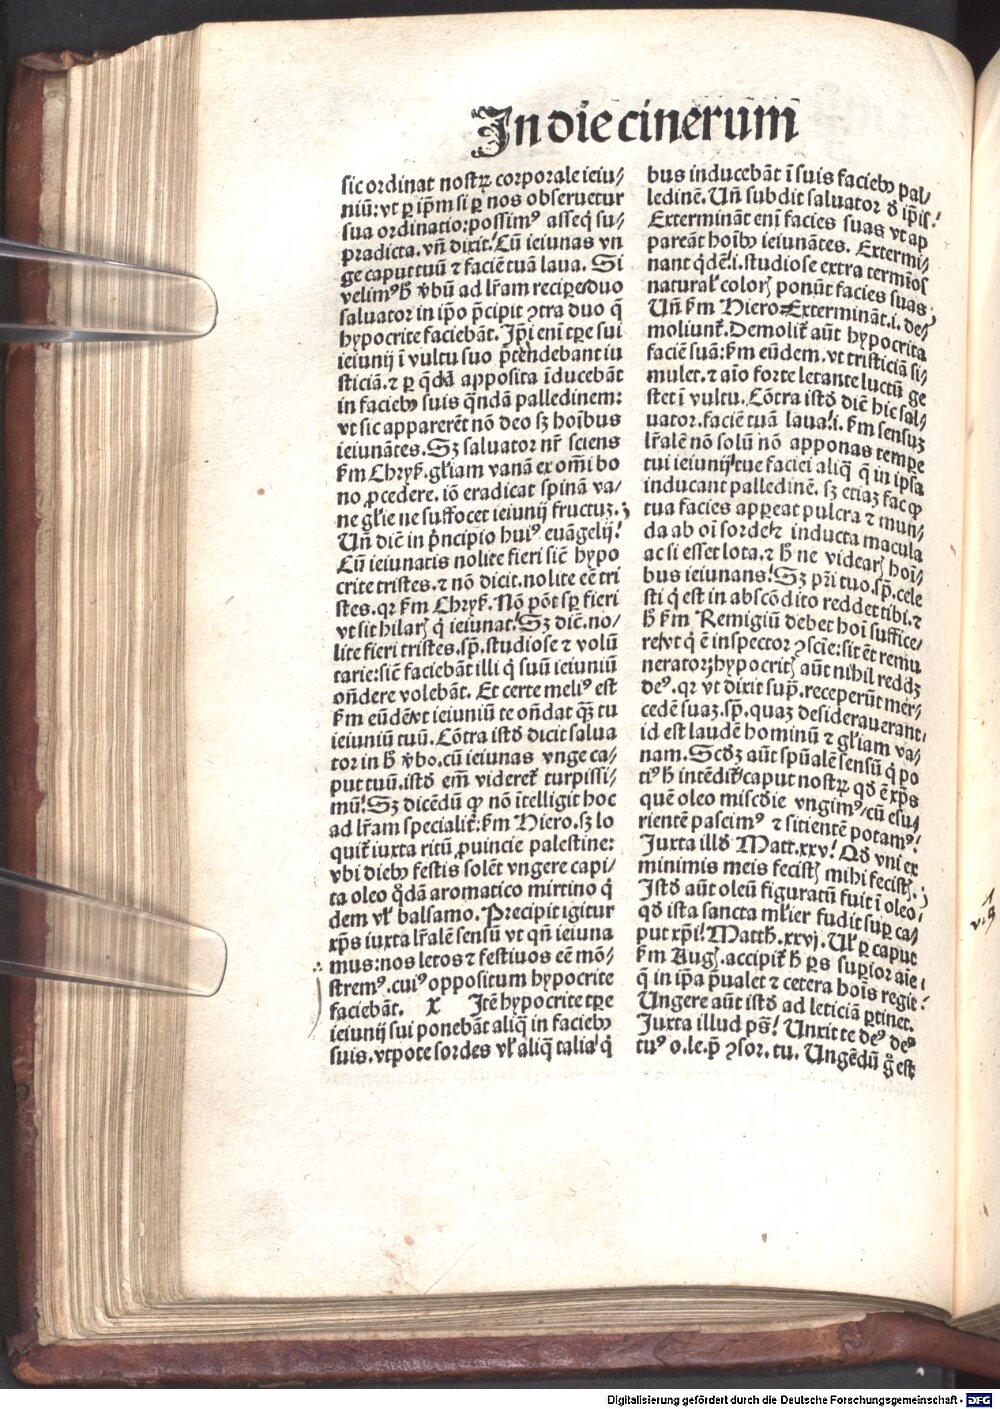 In die cinerum̄
sic ordinat nostrꝝ corporale ieiu/
niū: vt ꝑ ip̄m si ꝑ nos obseruetur
sua ordinatio: possimꝰ asseq̄ su/
pradicta. vn̄ dixit. Cū ieiunas vn
ge caput tuū ⁊ faciē tuā laua. Si
velimꝰ h̄ v̄bū ad lr̄am recipere duo
saluator in ip̄o p̄cipit ꝯtra duo q̄
hypocrite faciebāt. Ip̄i eni tꝑe sui
ieiunij ī vultu suo p̄tēdebant iu
sticiā. ⁊ ꝑ q̄dā apposita īducebāt
in faciebꝰ suis q̄ndā palledinem:
vt sic apparerēt nō deo sꝫ hoībus
ieiunātes. Sꝫ saluator nr̄ sciens
ẜm Chryẜ. gl̄iam vanā ex om̄i bo
no ꝓcedere. iō eradicat spinā va/
ne gl̄ie ne suffocet ieiunij fructuꝫ.
Un̄ dic̄ in p̄ncipio huiꝰ euāgelij.
Cū ieiunatis nolite fieri sic̄ hypo
crite tristes. ⁊ nō dicit. nolite eē tri
stes. qꝛ ẜm Chryẜ. Nō pōt sꝑ fieri
vt sit hilarꝭ q̄ ieiunat. Sꝫ dic̄. no/
lite fieri tristes. sp̄. studiose ⁊ volū
tarie: sic̄ faciebāt illi q̄ suū ieiuniū
on̄dere volebāt. Et certe meliꝰ est
ẜm eūdē vt ieiuniū te on̄dat qꝫ̄ tu
ieiuniū tuū. Cōtra istd̄ dicit salua
tor in h̄ v̄bo. cū ieiunas vnge ca/
put tuū. istd̄ em̄ videret̄ turpissi/
mū. Sꝫ dicēdū ꝙ nō ītelligit hoc
ad lr̄am specialit̄: ẜm Hiero. sꝫ lo
quit̄ iuxta ritū ꝓuincie palestine:
vbi diebꝰ festis solēt vngere capi/
ta oleo q̄dā aromatico mirtino q̄
dem vl̄ balsamo. Precipit igitur
xp̄s iuxta lr̄alē sensū vt qn̄ ieiuna
mus: nos letos ⁊ festiuos eē mō/
stremꝰ. cuiꝰ oppositum hypocrite
faciebāt. X Itē hypocrite tꝑe
ieiunij sui ponebāt aliq̄ in faciebꝰ
suis. vtpote sordes vl̄ aliq̄ talia q̄
bus inducebāt ī suis faciebꝰ pal/
ledinē. Un̄ subdit saluator d̄ ip̄is.
Extermināt eni facies suas vt ap
pareāt hoībꝰ ieiunātes. Extermi/
nant q̄dē. i. studiose extra termīos
natural̄ colorꝭ ponūt facies suas.
Un̄ ẜm Hiero. Extermināt. i. de/
moliunt̄. Demolit̄ aūt hypocrita
faciē suā: ẜm eūdem. vt tristiciā si/
mulet. ⁊ aīo forte letante luctū ge
stet ī vultu. Cōtra istd̄ dic̄ hic sal/
uator. faciē tuā laua. i. ẜm sensuꝫ
lr̄alē nō solū nō apponas tempꝑe
tui ieiunij tue faciei aliq̄ q̄ in ipsa
inducant palledinē. sꝫ etiaꝫ fac ꝙ
tua facies appeat pulcra ⁊ mun/
da ab oī sorde ⁊ inducta macula
ac si esset lota. ⁊ h̄ ne videarꝭ hoī/
bus ieiunans. Sꝫ pr̄i tuo. sp̄. cele
sti q̄ est in abscōdito reddet tibi. ⁊
h̄ ẜm Remigiū debet hoī suffice/
re vt q̄ ē inspector ꝯscīe: sit ēt remu
nerator. hypocritꝭ aūt nihil reddꝫ
deꝰ. qꝛ vt dixit sup̄. receperūt mer/
cedē suaꝫ. sp̄. quaꝫ desiderauerant.
id est laudē hominū ⁊ gl̄iam va/
nam. Scd̄ꝫ aūt spūalē sensū q̄ po
tiꝰ h̄ intēdit̄ caput nostrꝝ qd̄ ē xp̄s
quē oleo miscd̄ie vngimꝰ/ cū esu/
rientē pascimꝰ ⁊ sitientē potamꝰ.
Juxta illd̄ Matt. xxv. Qd̄ vni ex
minimis meis fecistꝭ mihi fecistꝭ.
Istd̄ aūt oleū figuratū fuit ī oleo.
qd̄ ista sancta ml̄ier fudit suꝑ ca/
put xp̄i. Matth. xxvj. Ul̄ ꝑ caput
ẜm Augꝭ. accipit̄ h̄ ꝑs suꝑior aīe
q̄ in ip̄a p̄ualet ⁊ cetera hoīs regit.
Ungere aūt istd̄ ad leticiā ꝑtinet.
Juxta illud ps̄. Unxit te deꝰ deꝰ
tuꝰ o. le. p̄ ꝯsor. tu. Ungēdū g̊ est
Digitalisierung gefördert durch die Deutsche Forschungsgemeinschaft - DFG